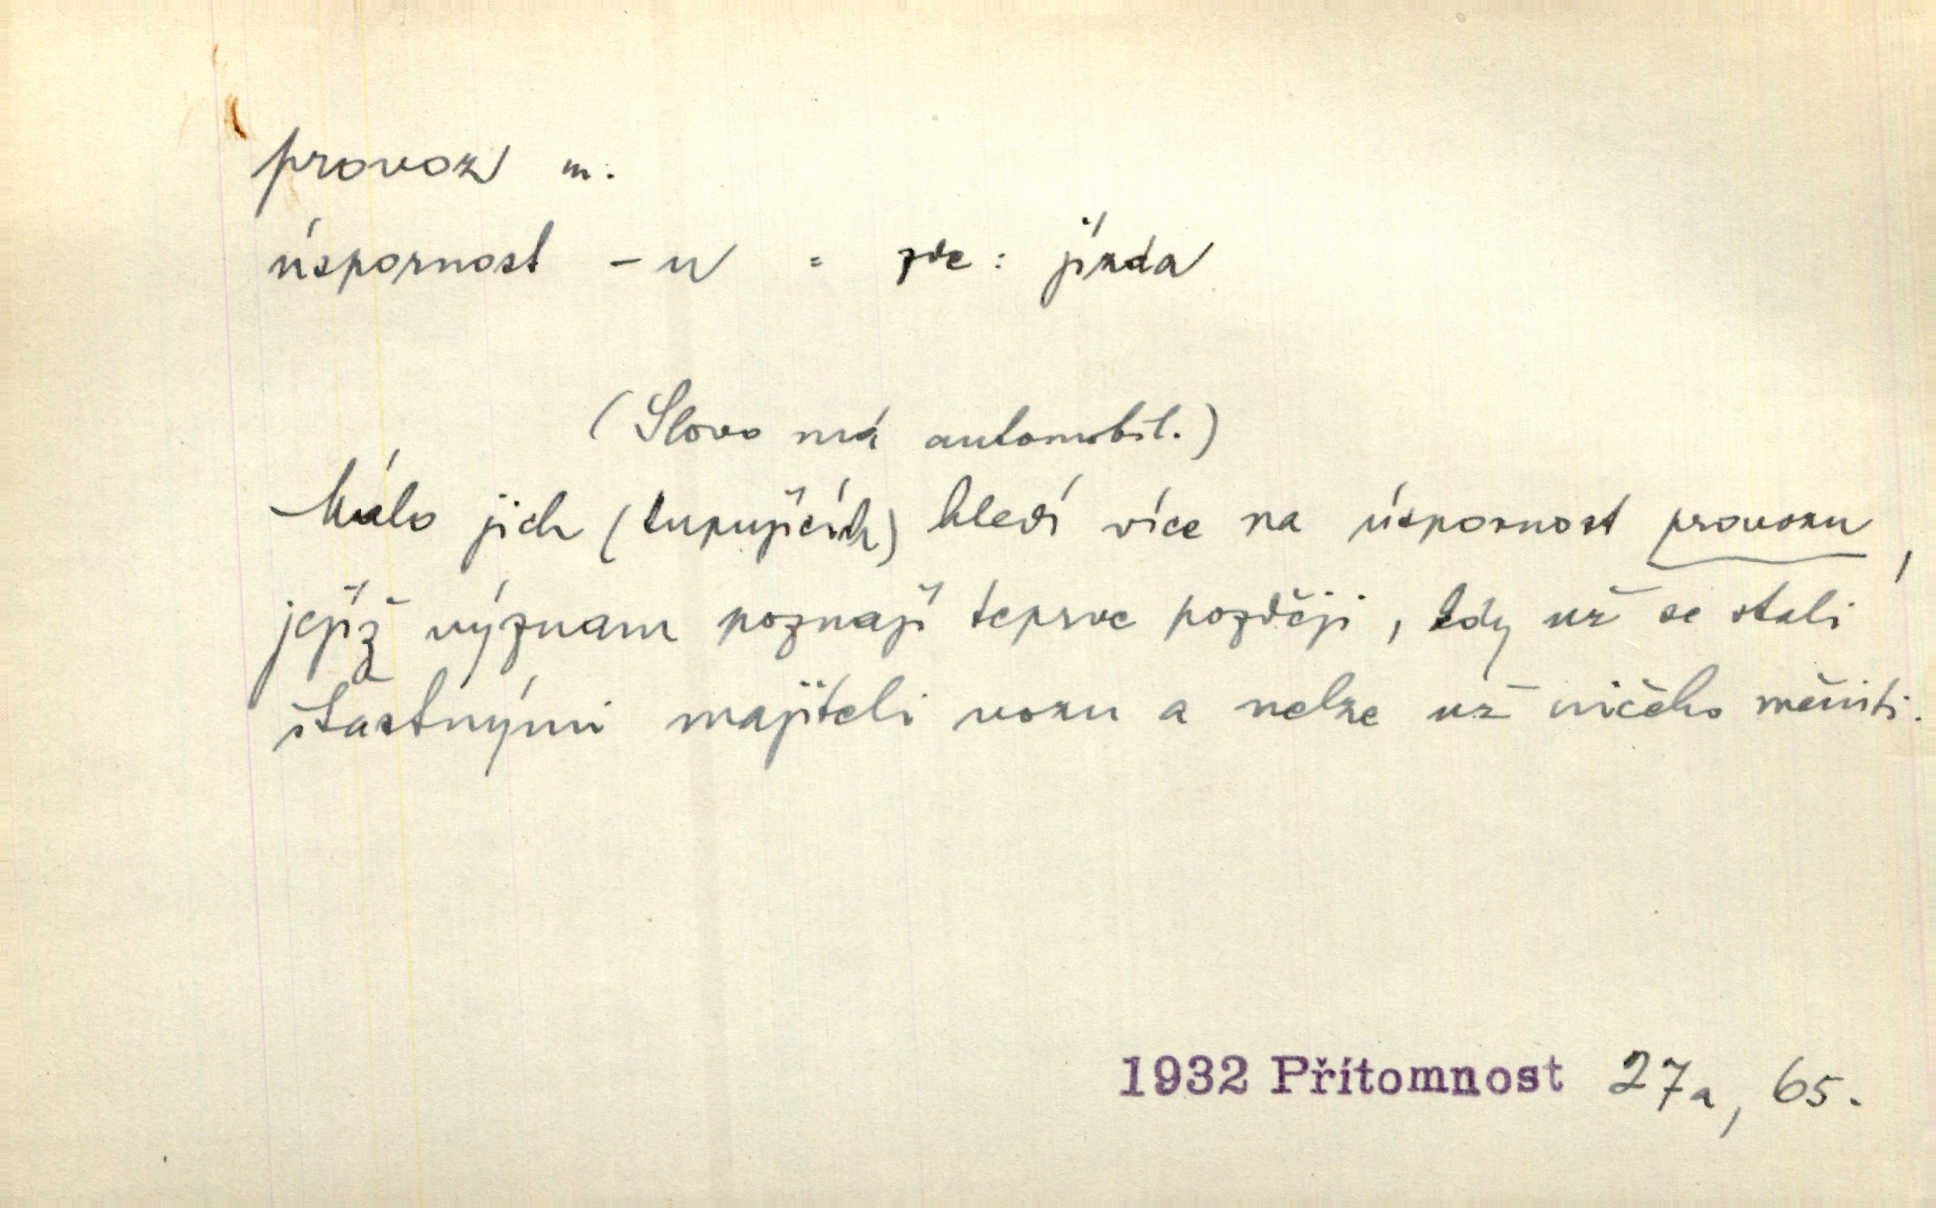 provoz m.
úspornost -u = zde: jízda
(Slovo má automobil.)
Málo jich (kupujících) hledí více na úspornost provozu,
jejíž význam poznají teprve později, kdy už se stali
šťastnými majiteli vozu a nelze už ničeho měniti.
1932 Přítomnost 27a, 65.